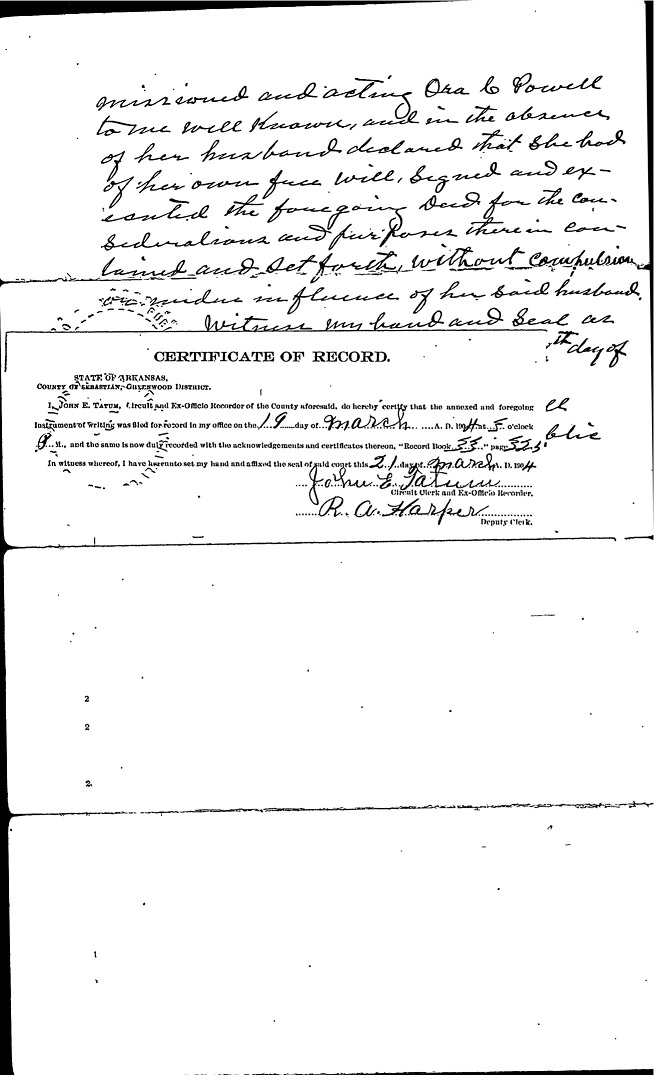 missioned and acting Ora C Powell
to me well Known, and in the absence
of her husband declared that She had
of her own free will, Signed and ex-
ecuted the foregoing Deed for the con-
siderations and purposes therein con-
tained and set forth, without compulsion
or undue influence of her said husband.
Witness my hand and Seal as
th day of
CERTIFICATE OF RECORD.
STATE OF ARKANSAS,
COUNTY OF SEBASTIAN, GREENWOOD DISTRICT.
I, JOHN E. TATUM, Circuit and Ex-Officio Recorder of the County aforesaid, do hereby certify that the annexed and foregoing
ell
Instrument of Writing was filed for record in my office on the 19 day of March A. D. 1904 at 5 o'clock
blic
M., and the same is now duly recorded with the acknowledgements and certificates thereon, "Record Book 33" page 525
In witness whereof, I have hereunto set my hand and affixed the seal of said court this 21 day of March A. D. 1904
John E. Tatum
Circuit Clerk and Ex-Officio Recorder.
R. A. Harper
Deputy Clerk.
2
2
2.
1